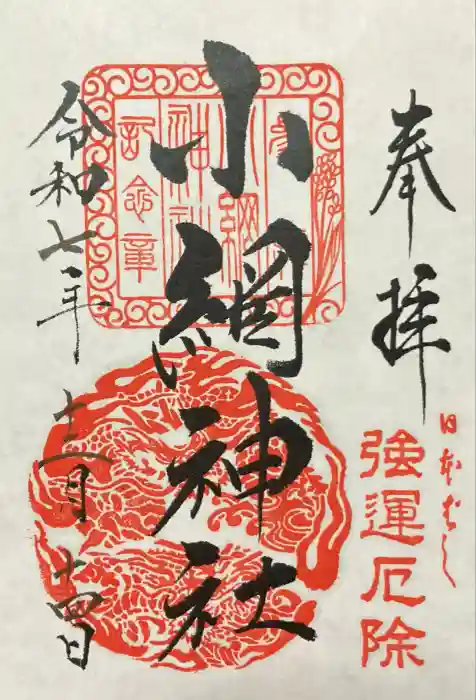 奉拝
日本ばし
強運厄除
小網神社
小網
神社
記念章
令和七年十二月十四日